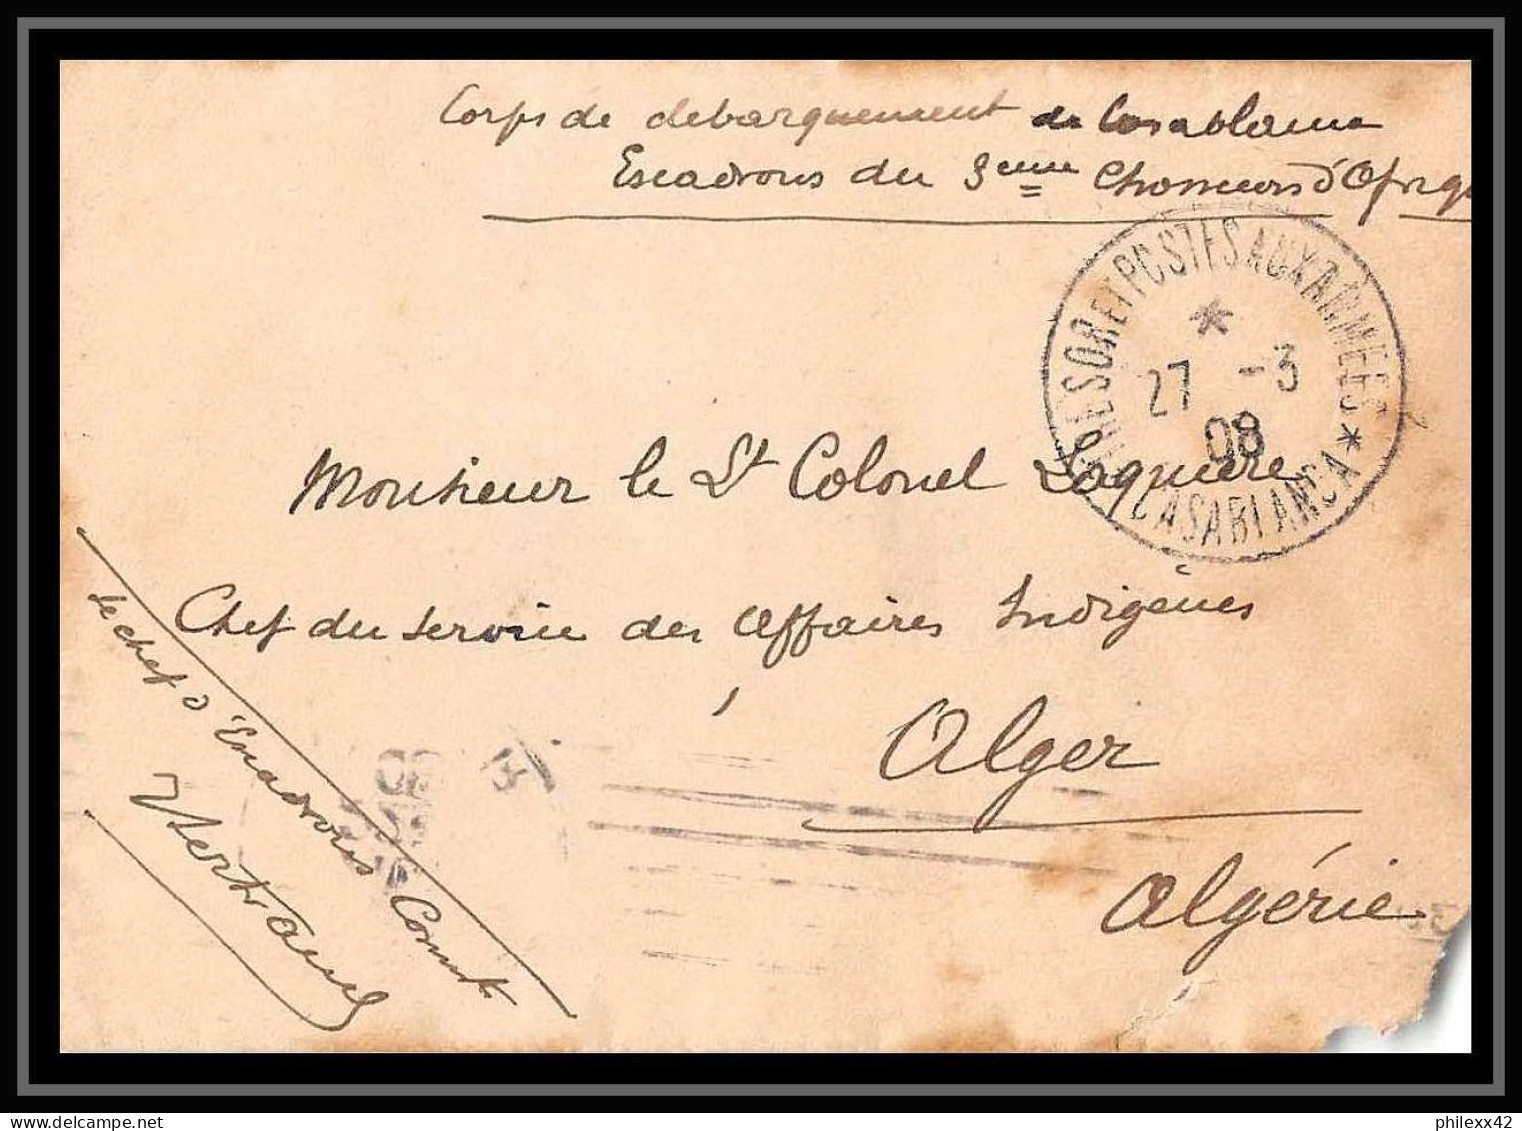 Corps de debarquement de Casablanca
Escadrons du 3eme Chasseurs d'Afrique
TRESOR ET POSTES AUX ARMEES
*
27 -3
08
* CASABLANCA *
Monsieur le Lt Colonel Laquière
Chef du service des Affaires Indigènes
à
Alger
Algérie
Le chef d'Escadrons Comt
philexx42